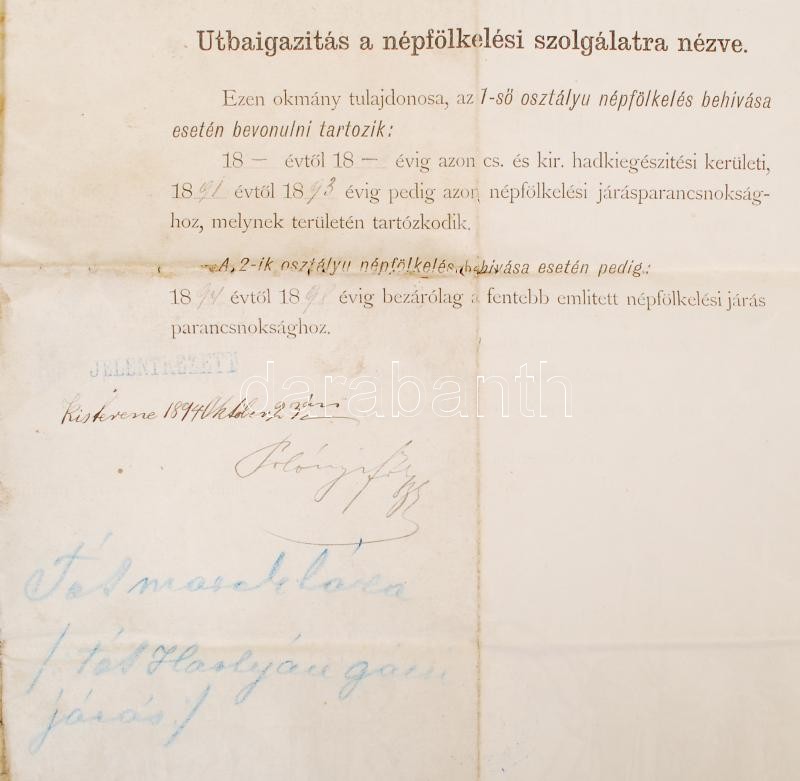 Utbaigazitás a népfölkelési szolgálatra nézve.
Ezen okmány tulajdonosa, az 1-ső osztályu népfölkelés behivása
esetén bevonulni tartozik:
18 — évtől 18 — évig azon cs. és kir. hadkiegészitési kerületi,
1891 évtől 1893 évig pedig azon népfölkelési járásparancsnokság-
hoz, melynek területén tartózkodik.
A 2-ik osztályu népfölkelés behivása esetén pedig:
1894 évtől 189 évig bezárólag a fentebb emlitett népfölkelési járás
parancsnoksághoz.
JELENTKEZETT
darabanth
Kisterene 1894 Október 2
járás/